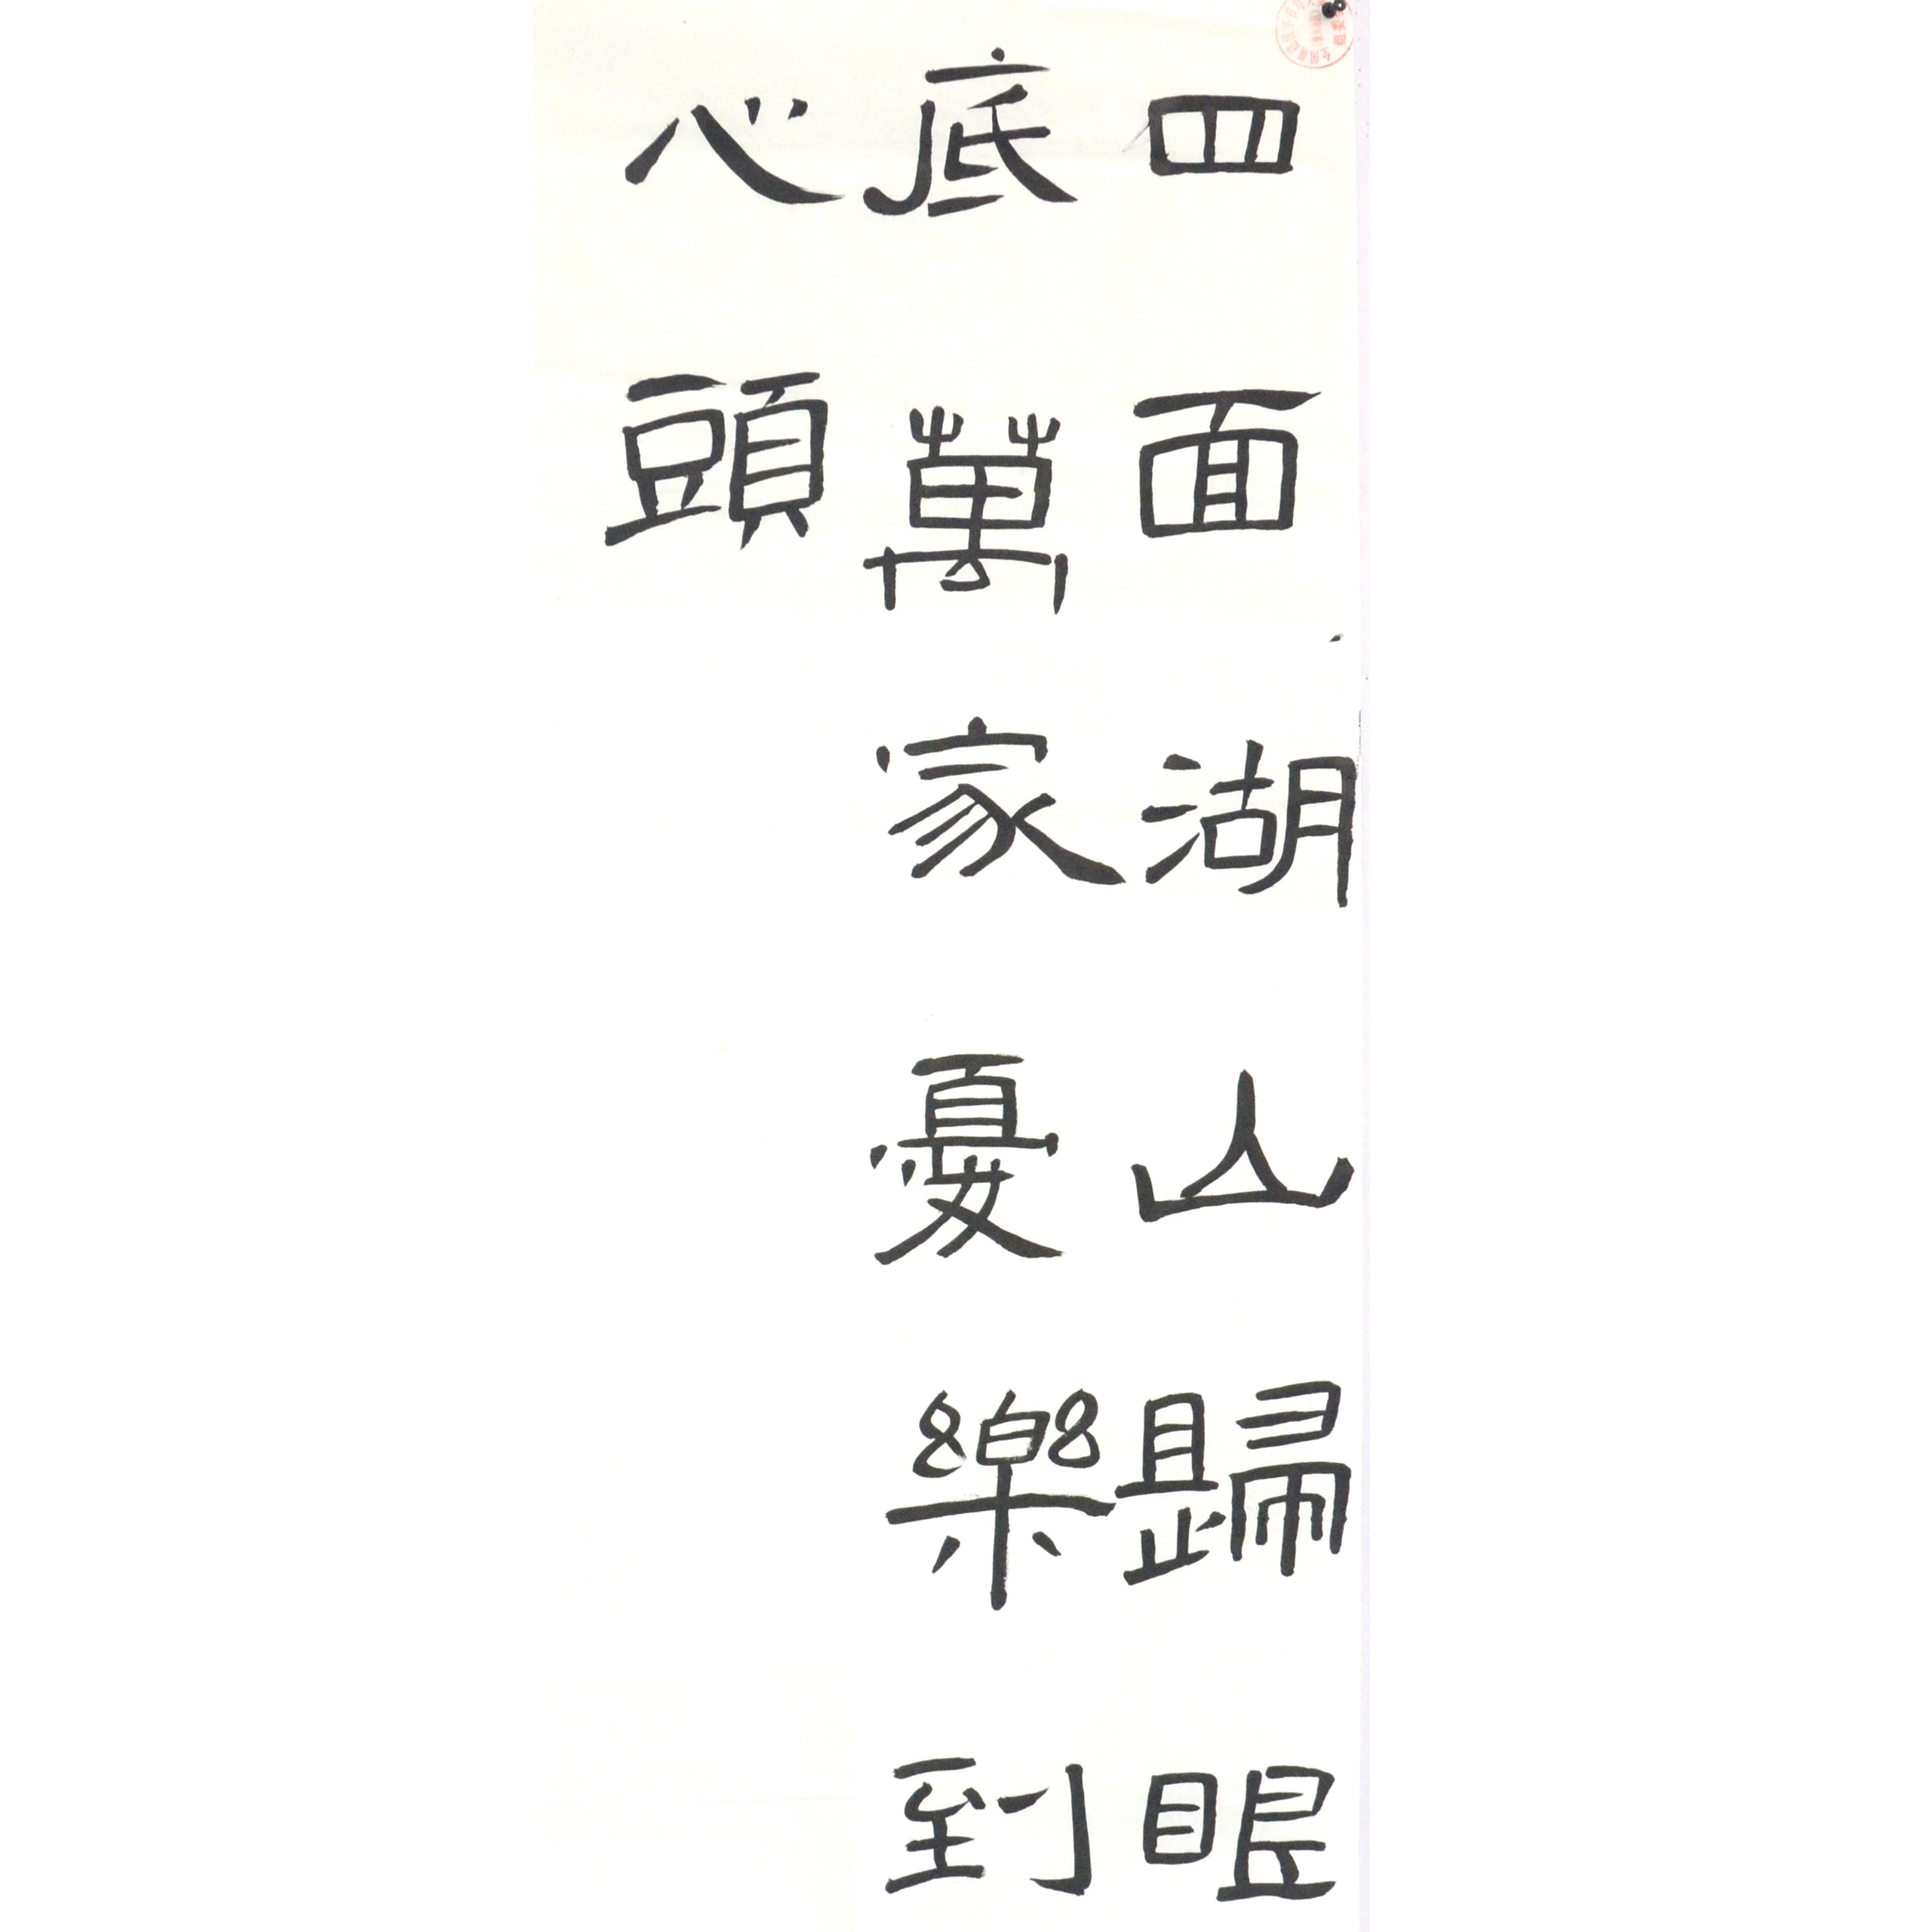 四面湖山歸眼
底萬家憂樂到
心頭